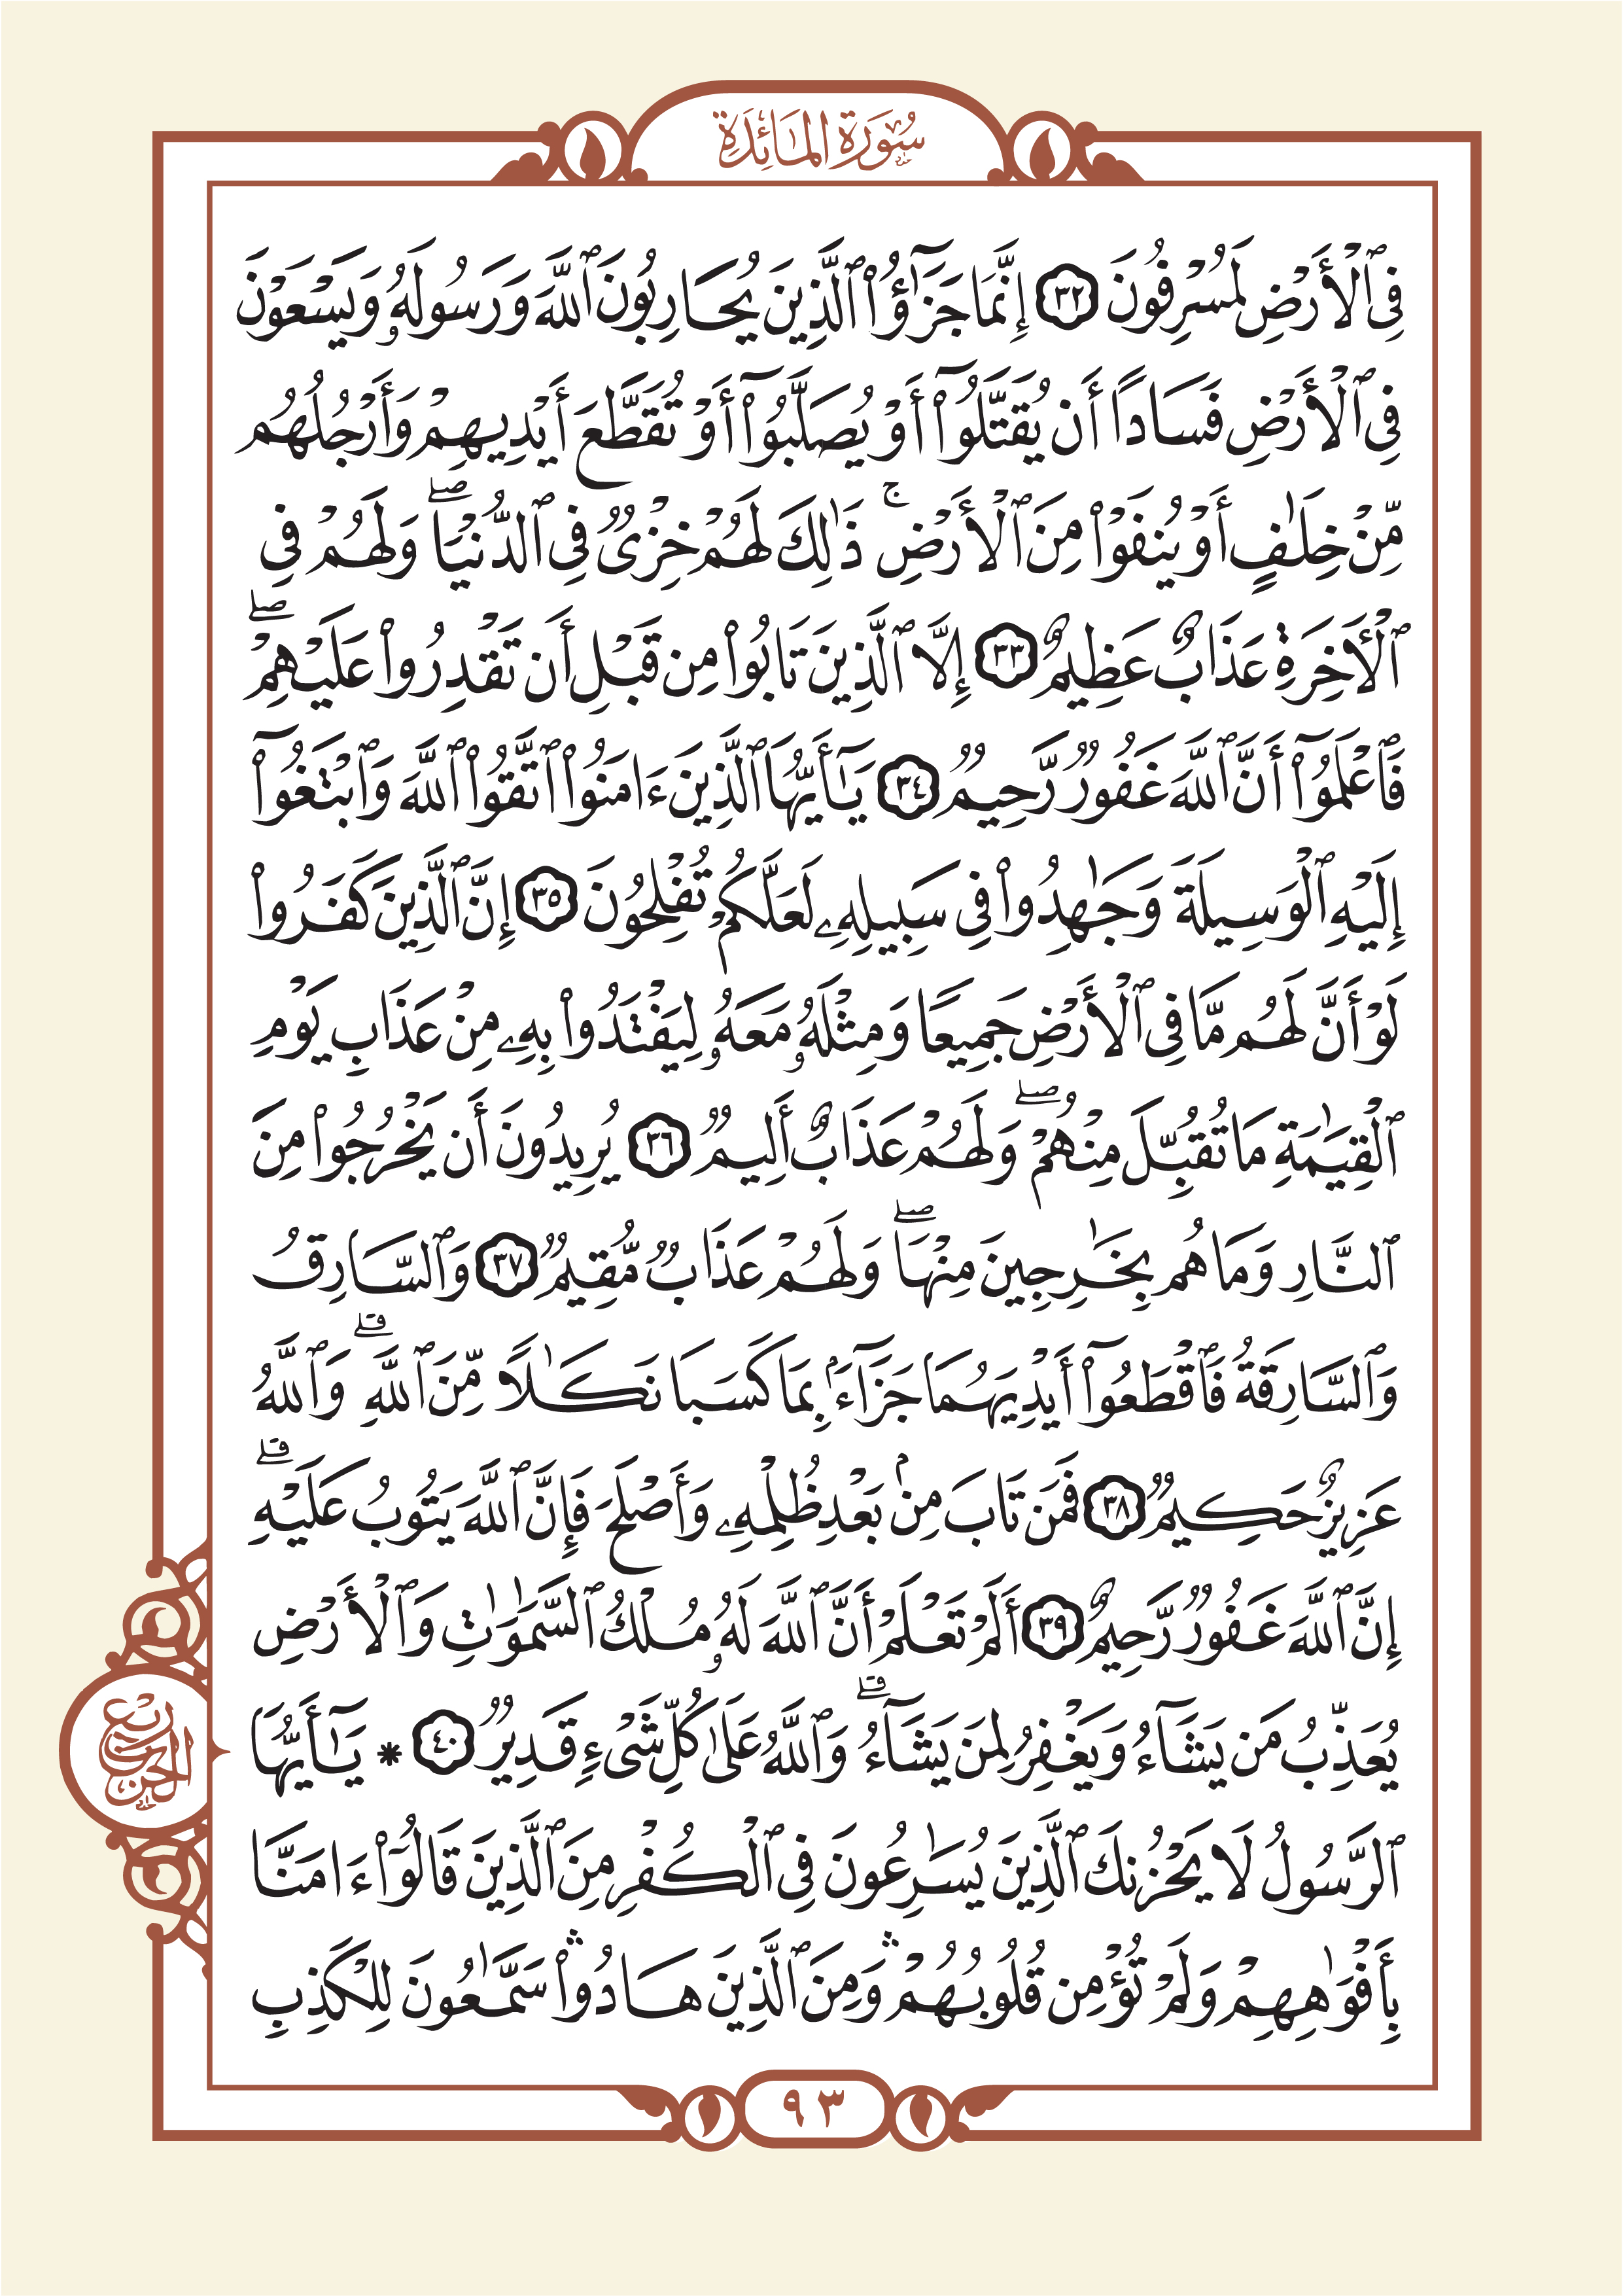 سُورَةُ المَائِدَةِ
فِى ٱلْأَرْضِ لَمُسْرِفُونَ ٣٢ إِنَّمَا جَزَٰٓؤُا۟ ٱلَّذِينَ يُحَارِبُونَ ٱللَّهَ وَرَسُولَهُۥ وَيَسْعَوْنَ
فِى ٱلْأَرْضِ فَسَادًا أَن يُقَتَّلُوٓا۟ أَوْ يُصَلَّبُوٓا۟ أَوْ تُقَطَّعَ أَيْدِيهِمْ وَأَرْجُلُهُم
مِّنْ خِلَٰفٍ أَوْ يُنفَوْا۟ مِنَ ٱلْأَرْضِ ۚ ذَٰلِكَ لَهُمْ خِزْىٌ فِى ٱلدُّنْيَا ۖ وَلَهُمْ فِى
ٱلْأَخِرَةِ عَذَابٌ عَظِيمٌ ٣٣ إِلَّا ٱلَّذِينَ تَابُوا۟ مِن قَبْلِ أَن تَقْدِرُوا۟ عَلَيْهِمْ ۖ
فَٱعْلَمُوٓا۟ أَنَّ ٱللَّهَ غَفُورٌ رَّحِيمٌ ٣٤ يَٰٓأَيُّهَا ٱلَّذِينَ ءَامَنُوا۟ ٱتَّقُوا۟ ٱللَّهَ وَٱبْتَغُوٓا۟
إِلَيْهِ ٱلْوَسِيلَةَ وَجَٰهِدُوا۟ فِى سَبِيلِهِۦ لَعَلَّكُمْ تُفْلِحُونَ ٣٥ إِنَّ ٱلَّذِينَ كَفَرُوا۟
لَوْ أَنَّ لَهُم مَّا فِى ٱلْأَرْضِ جَمِيعًا وَمِثْلَهُۥ مَعَهُۥ لِيَفْتَدُوا۟ بِهِۦ مِنْ عَذَابِ يَوْمِ
ٱلْقِيَٰمَةِ مَا تُقُبِّلَ مِنْهُمْ ۖ وَلَهُمْ عَذَابٌ أَلِيمٌ ٣٦ يُرِيدُونَ أَن يَخْرُجُوا۟ مِنَ
ٱلنَّارِ وَمَا هُم بِخَٰرِجِينَ مِنْهَا ۖ وَلَهُمْ عَذَابٌ مُّقِيمٌ ٣٧ وَٱلسَّارِقُ
وَٱلسَّارِقَةُ فَٱقْطَعُوٓا۟ أَيْدِيَهُمَا جَزَآءَۢ بِمَا كَسَبَا نَكَٰلًا مِّنَ ٱللَّهِ ۗ وَٱللَّهُ
عَزِيزٌ حَكِيمٌ ٣٨ فَمَن تَابَ مِنۢ بَعْدِ ظُلْمِهِۦ وَأَصْلَحَ فَإِنَّ ٱللَّهَ يَتُوبُ عَلَيْهِ ۗ
إِنَّ ٱللَّهَ غَفُورٌ رَّحِيمٌ ٣٩ أَلَمْ تَعْلَمْ أَنَّ ٱللَّهَ لَهُۥ مُلْكُ ٱلسَّمَٰوَٰتِ وَٱلْأَرْضِ
يُعَذِّبُ مَن يَشَآءُ وَيَغْفِرُ لِمَن يَشَآءُ ۗ وَٱللَّهُ عَلَىٰ كُلِّ شَىْءٍ قَدِيرٌ ٤٠ * يَٰٓأَيُّهَا
ٱلرَّسُولُ لَا يَحْزُنكَ ٱلَّذِينَ يُسَٰرِعُونَ فِى ٱلْكُفْرِ مِنَ ٱلَّذِينَ قَالُوٓا۟ ءَامَنَّا
بِأَفْوَٰهِهِمْ وَلَمْ تُؤْمِن قُلُوبُهُمْ ۛ وَمِنَ ٱلَّذِينَ هَادُوا۟ ۛ سَمَّٰعُونَ لِلْكَذِبِ
ربع الحزب
٩٣